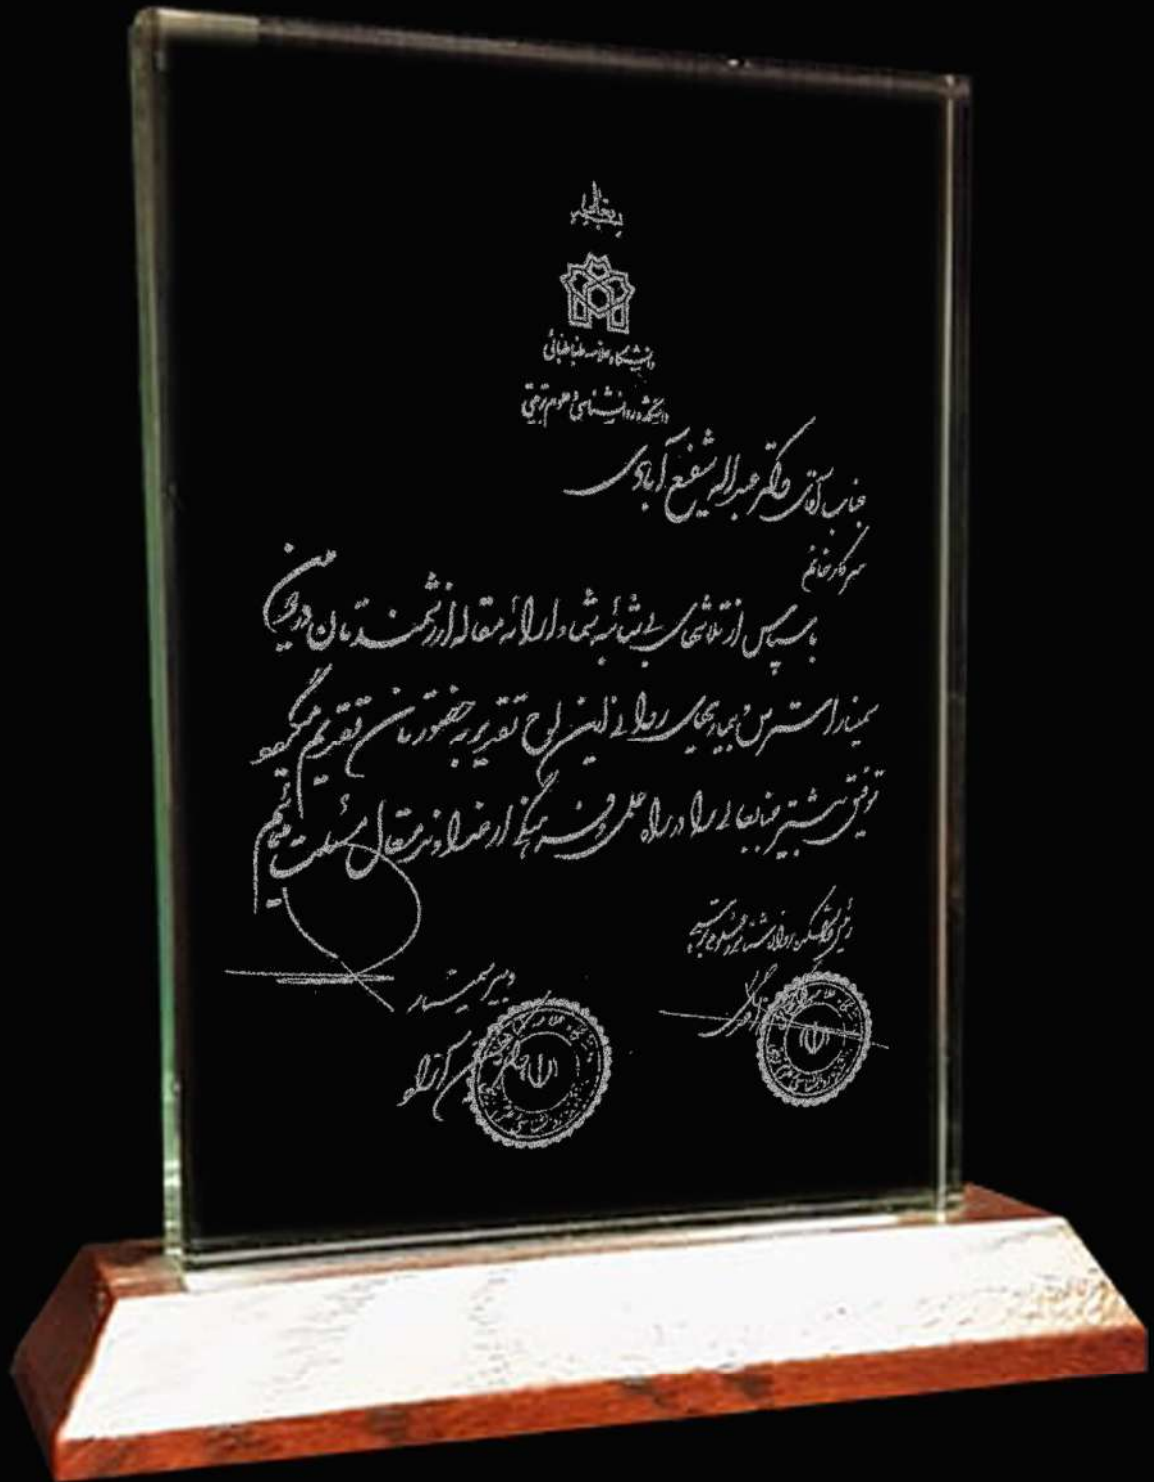 بسمه تعالی
دانشگاه علامه طباطبائی
دانشکده روانشناسی و علوم تربیتی
جناب آقای دکتر عبداله شفیع آبادی
سرکار خانم
با سپاس از تلاشهای بی شائبه شما و ارائه مقاله ارزشمندتان در
سمینار استرس و بیماریهای روانی این لوح تقدیر به حضورتان تقدیم میگردد
توفیق بیشتر جنابعالی را در راه علمی و فرهنگی از خداوند متعال مسئلت مینمائیم
رئیس دانشکده روانشناسی و علوم تربیتی
دبیر سمینار
آزاد